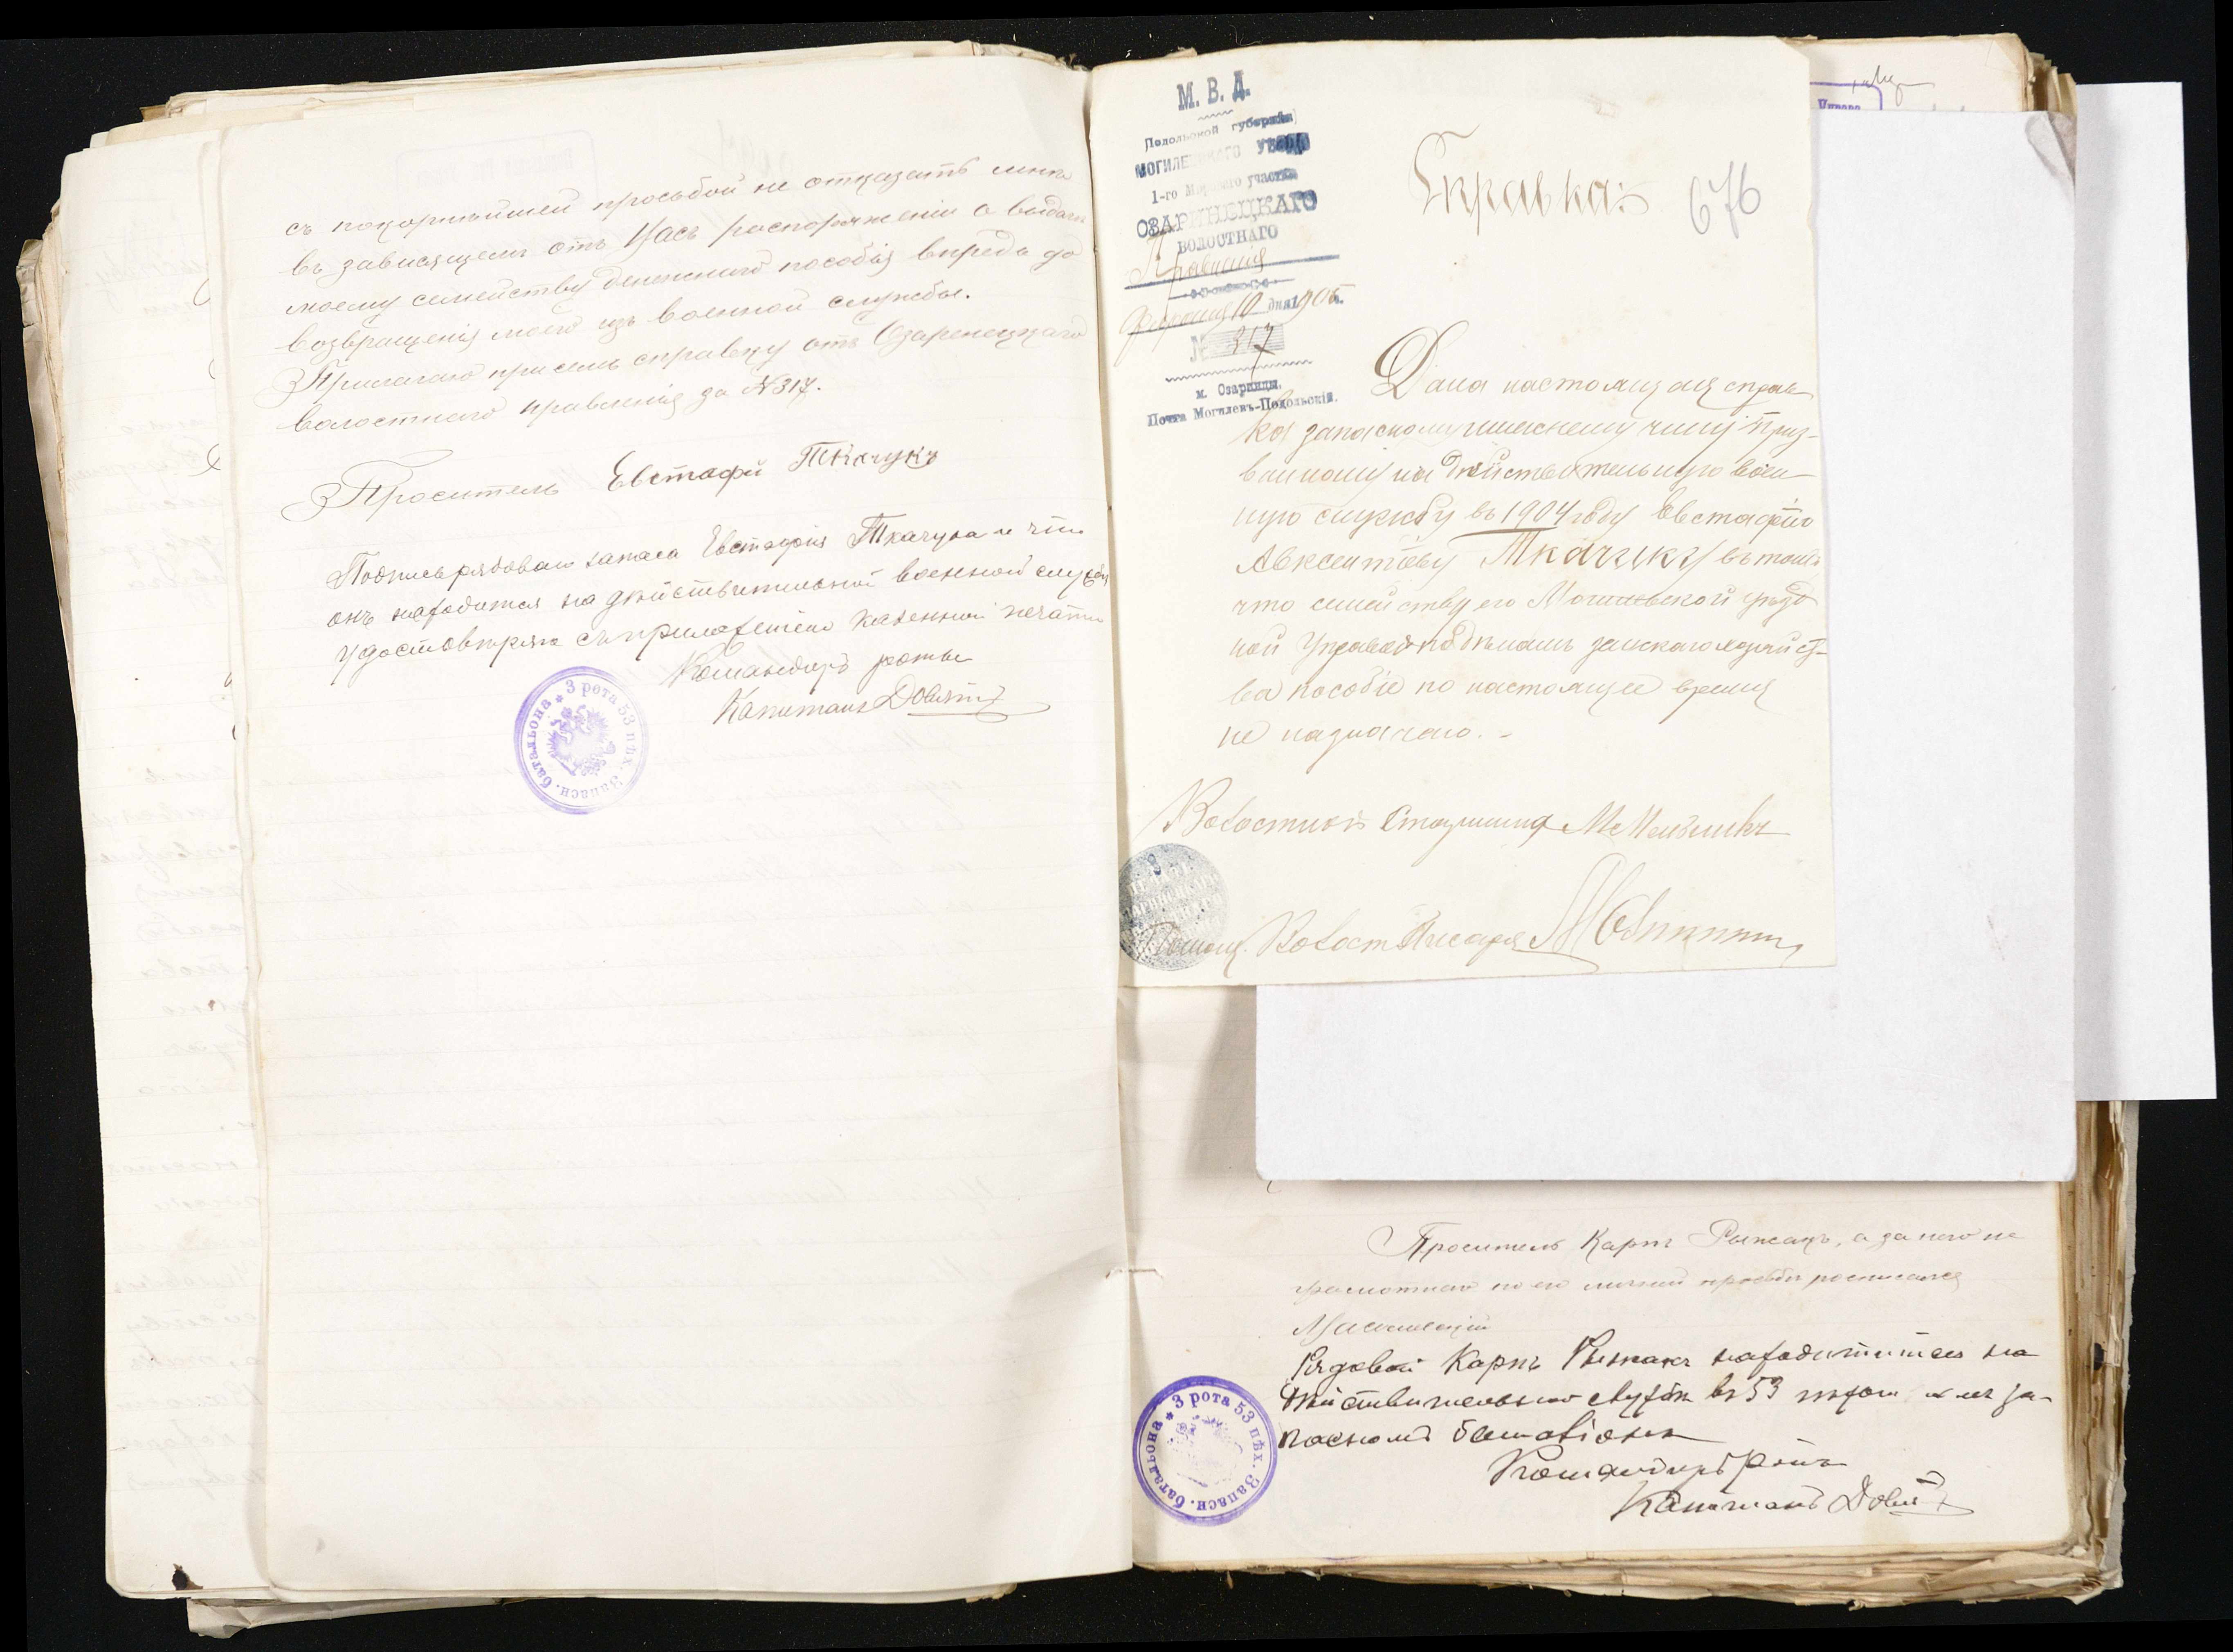 съ покорнѣйшей просьбой не отказать мнѣ
въ зависящемъ отъ Васъ распоряженіи о выдачѣ
моему семейству денежнаго пособія впредь до
возвращенія моего изъ военной службы.
Прилагаю при семъ справку отъ Озаренецкаго
волостного правленія за №317.
Проситель Евстафій Ткачукъ
Подпись рядового запаса Евстафія Ткачука и что
онъ находится на дѣйствительной военной службѣ
удостовѣряю съ приложеніемъ казенной печати
Командиръ роты
Капитанъ
3 рота 53 пѣх. Запасн. баталъона
М. В. Д.
Подольской губерніи
МОГИЛЕВСКАГО УѢЗДА
1-го Мирового участка
ОЗАРИНЕЦКАГО
ВОЛОСТНАГО
Правленія
Февраля 10 дня 1905 г.
№ 317
м. Озаринцы,
Почта Могилевъ-Подольскій.
Справка:
676
Дана настоящая справ-
ка запасному нижнему чину приз-
ванному на дѣйствительную воен-
ную службу въ 1904 году Евстафію
Авксентіеву Ткачуку въ томъ
что семейству его Могилевской уѣзд-
ной Управой по дѣламъ земскаго хозяйст-
ва пособіе по настоящее время
не назначено. -
Волостной Старшина М Мельникъ
Помощ. Волост Писаря
Проситель Карпъ Рыжакъ, а за него не
грамотнаго по его личной просьбѣ росписался
Рядовой Карпъ Рыжакъ находится на
дѣйствительной службѣ въ 53 пѣхотномъ за-
пасномъ баталіонѣ
Командиръ роты
Капитанъ
3 рота 53 пѣх. Запасн. баталъона